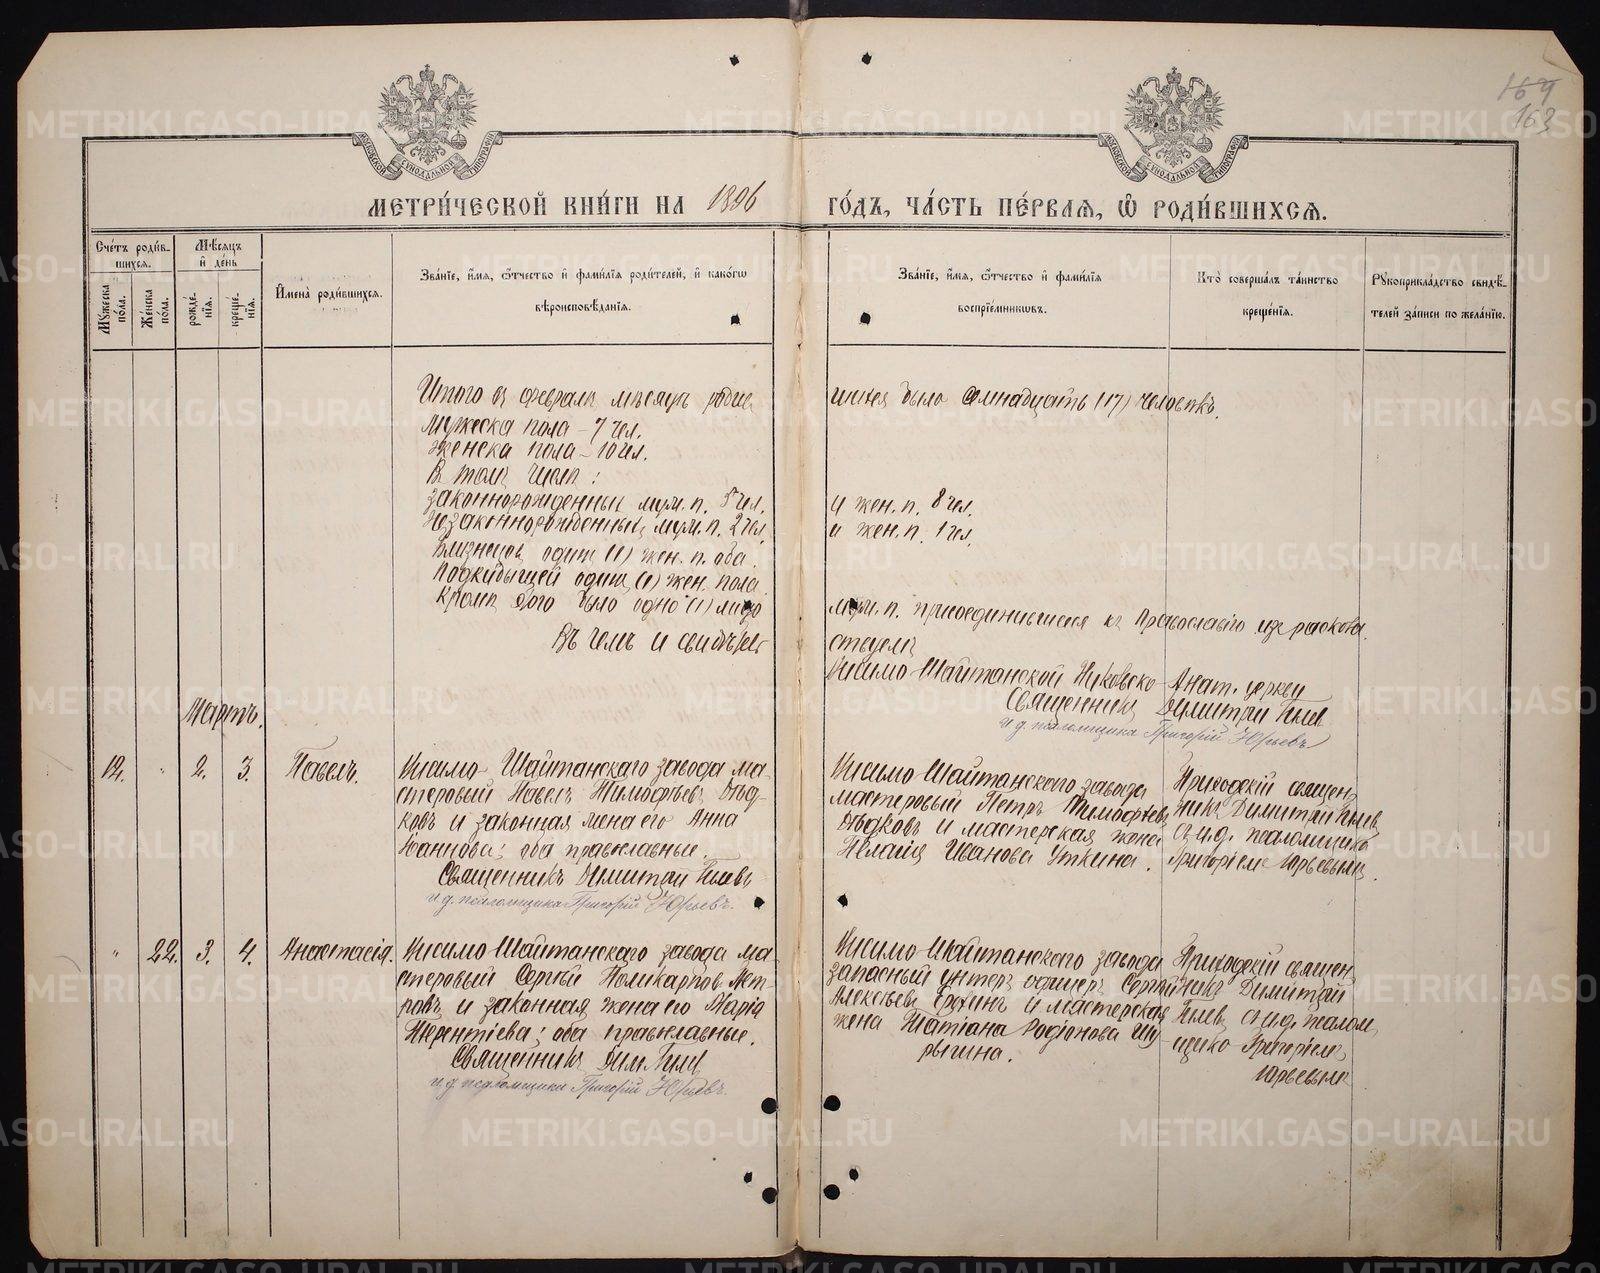 164
163
МОСКОВСКОЙ СѴНОДАЛЬНОЙ ТИПОГРАФІИ
МОСКОВСКОЙ СѴНОДАЛЬНОЙ ТИПОГРАФІИ
МЕТРИ́ЧЕСКОЙ КНИ́ГИ НА 1896 ГО́ДЪ, ЧА́СТЬ ПЕ́РВАЯ, Ѽ РОДИ́ВШИХСЯ.
Сче́тъ роди́в-
шихся.
Мꙋжеска по́ла.
Же́нска по́ла.
Мѣ́сяцъ
и҆ де́нь
рожде́-
нія.
креще́-
нія.
И҆мена̀ роди́вшихся.
Зва́ніе, и҆́мя, ѻ҆́тчество и҆ фами́лія роди́телей, и҆ како́гѡ
вѣроисповѣ́данія.
Зва́ніе, и҆́мя, ѻ҆́тчество и҆ фами́лія
воспріе́мникѡвъ.
Кто̀ соверша́лъ та́инство
креще́нія.
Рꙋкоприкла́дство свидѣ́-
телей за́писи по жела́нію.
Итого въ февралѣ мѣсяцѣ родив
шихся было семнадцать (17) человѣкъ.
Мужеска пола – 7 чел.
Женска пола – 10 чел.
Въ томъ числѣ:
законнорожденныхъ муж. п. 5 чел.
и жен. п. 8 чел.
незаконнорожденныхъ муж. п. 2 чел.
и жен. п. 1 чел.
близнецовъ одинъ (1) жен. п. оба.
Подкидышей одинъ (1) жен. пола
кромѣ того было одно (1) лицо
муж. п. присоединившееся къ Православію изъ раскола.
Въ чемъ и свидѣтель
ствуемъ
Висимо-Шайтанской Николаевско-Анат. церкви
Священникъ Димитрій
и. д. псаломщика Григорій Юрьевъ
Мартъ.
12. " 2. 3. Павелъ.
Висимо-Шайтанскаго завода ма-
стеровый Павелъ Тимофѣевъ Дѣд-
ковъ и законная жена его Анна
Іоаннова; оба православные.
Священникъ Димитрій
и. д. псаломщика Григорій Юрьевъ.
Висимо-Шайтанскаго завода
мастеровый Петръ Тимофѣевъ
Дѣдковъ и мастерская жена
Пелагія Иванова Уткина.
Приходскій священ-
никъ Димитрій
съ и. д. псаломщика
Григоріемъ Юрьевымъ.
" 22. 3. 4. Анастасія.
Висимо-Шайтанскаго завода ма-
стеровый Сергѣй Поликарповъ Пет-
ровъ и законная жена его Марія
Терентіева; оба православные.
Священникъ Дим.
и. д. псаломщика Григорій Юрьевъ.
Висимо-Шайтанскаго завода
запасный унтеръ офицеръ Сергѣй
Алексѣевъ и мастерская
жена Татіана Родіонова Шу-
рыгина.
Приходскій священ-
никъ Димитрій
съ и. д. псалом-
щика Григоріемъ
Юрьевымъ
METRIKI.GASO-URAL.RU